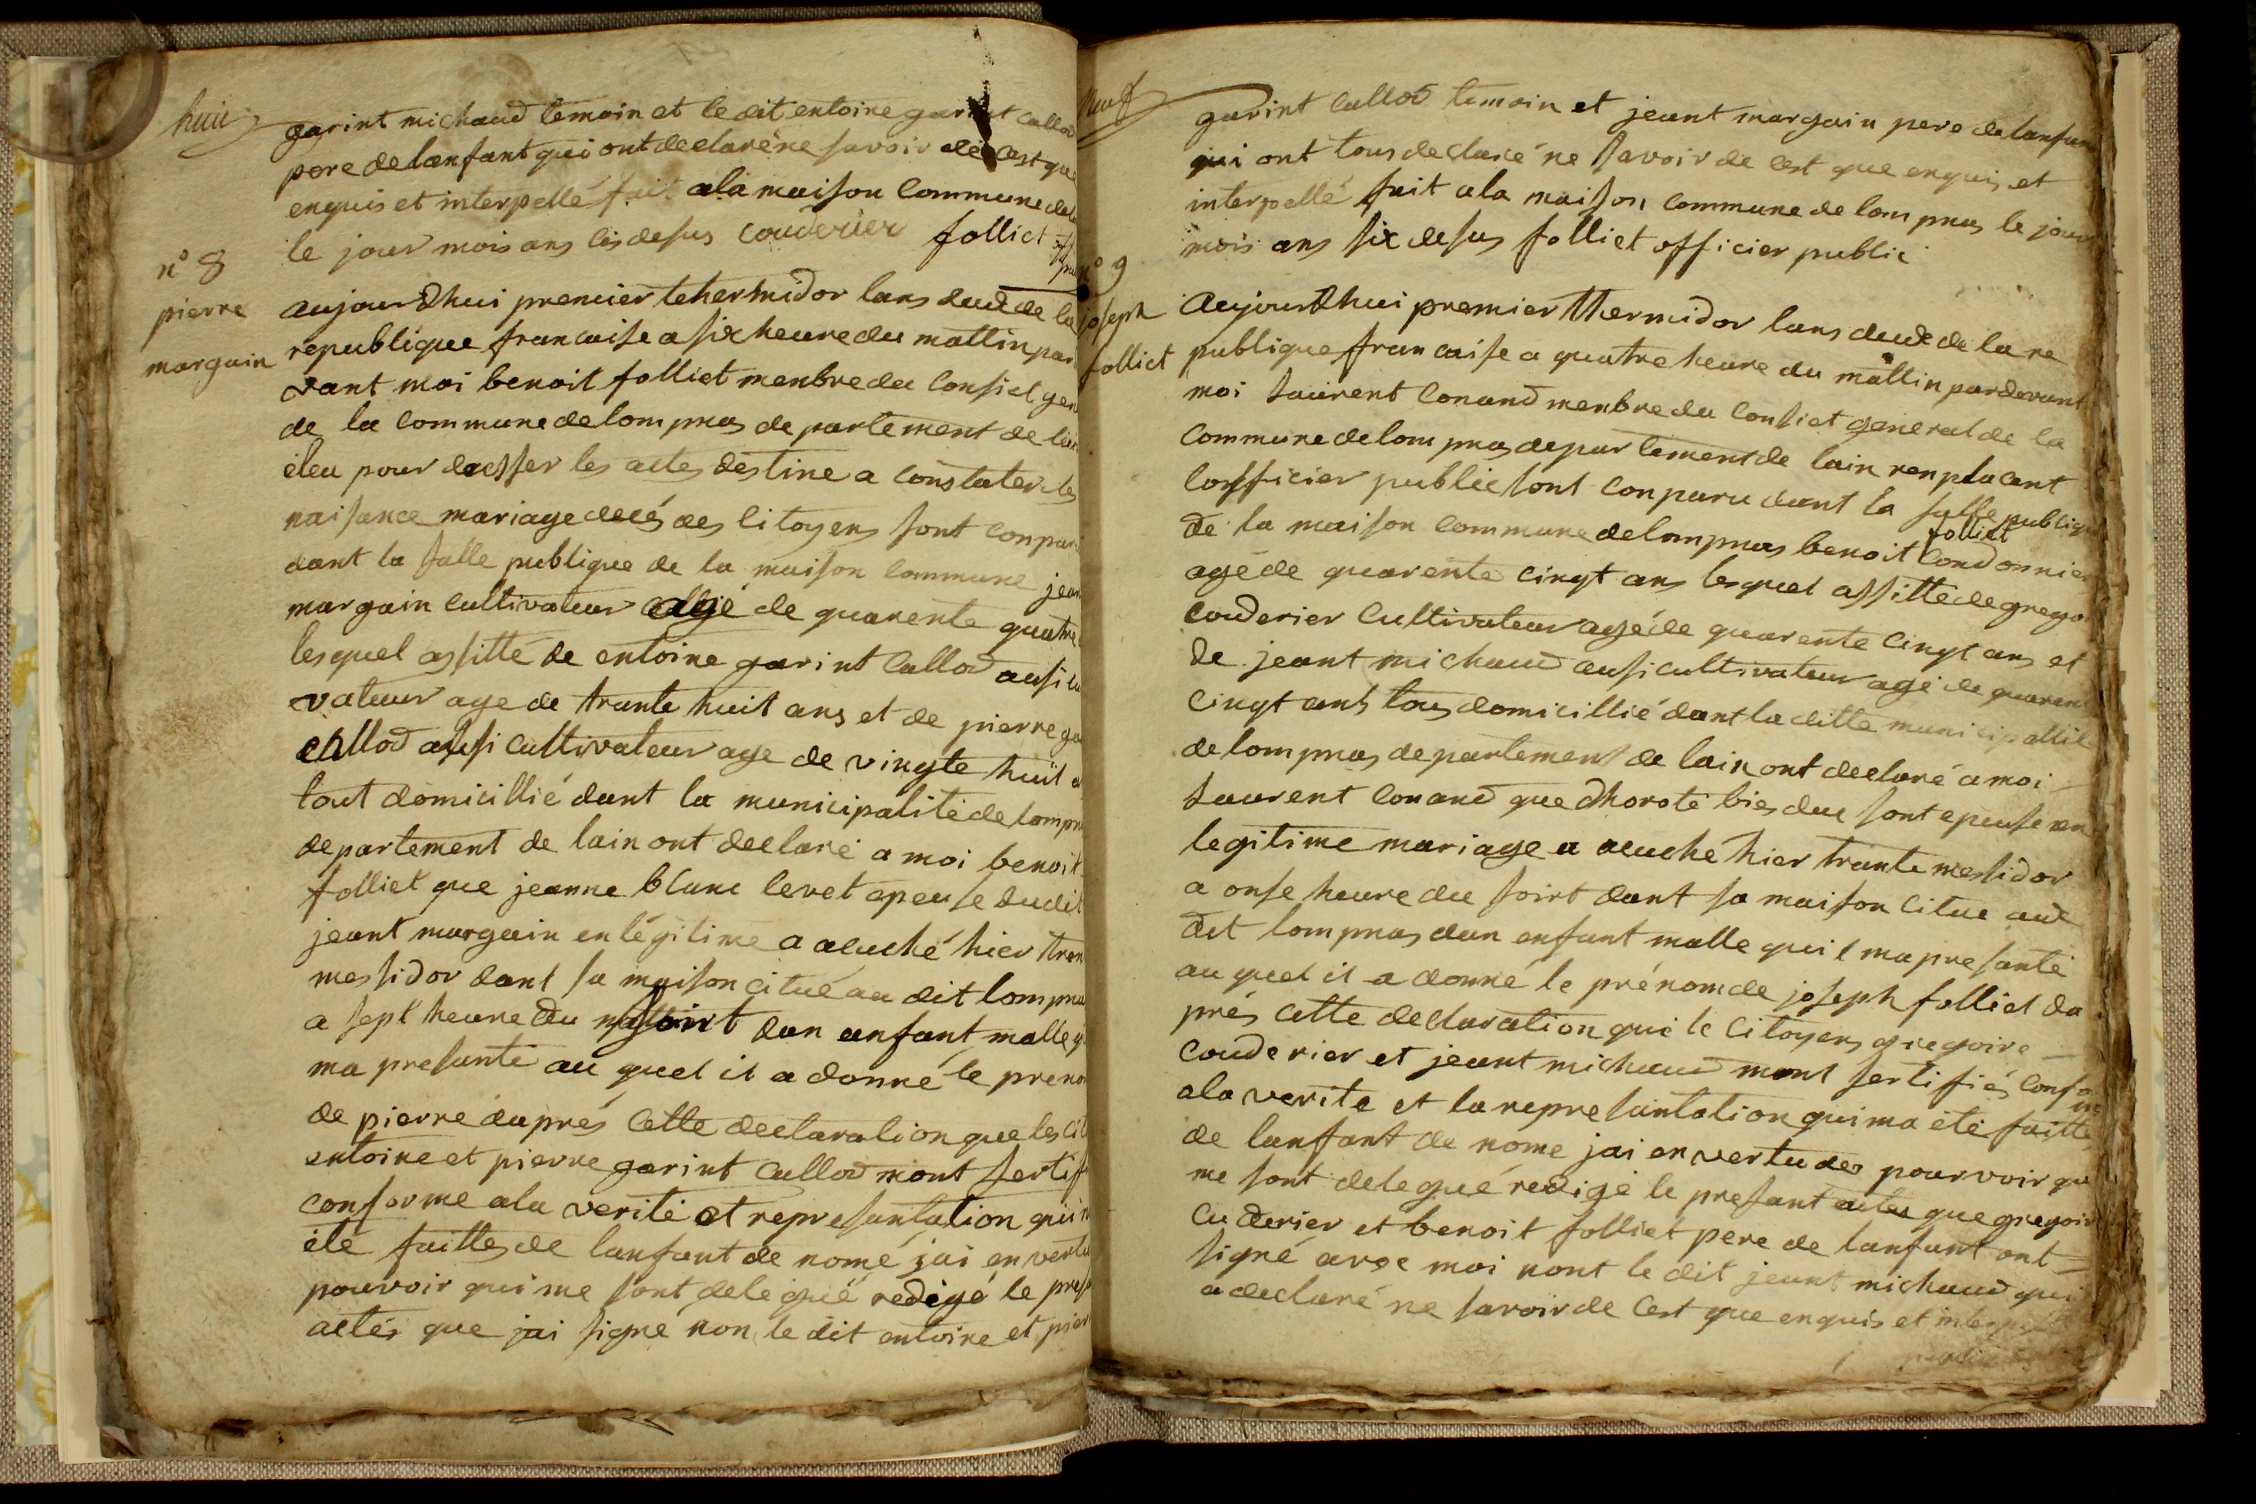 huit
garint michaud temoin et le dit entoine garint callod
pere de lanfant qui ont declaré ne savoir de cest que
enquis et interpellé fait ala maison commune de
le jour mois ans cis desus couderier folliet off
pu
n° 8
pierre
margain
aujourdhui premier tehermidor lans deux de la
republique francaise a six heure du mattin par
vant moi benoit folliet menbre du consiel gen
de la commune de lompnas departement de lain
éleu pour dresser les actes destine a constater les
naisance mariage decés des citoyens sont conparu
dant la salle publique de la maison commune jean
margain cultivateur agé de quarente quatre
lesquel assitté de entoine garint callod ausi cu
vateur age de trante huit ans et de pierre ga
callod ausi cultivateur age de vingte huit a
tout domicillié dant la municipalité de lompn
departement de lain ont declaré a moi benoit
folliet que jeanne blanc levet epeuse dudit
jeant margain en légitime a acuché hier tran
messidor dant sa maison citué au dit lompna
a sept heure du soirt dun anfant malle q
ma presanté au quel il a donné le preno
de pierre daprés cette declaration que les cit
entoine et pierre garint callod mont sertif
conforme ala verité et represantation qui m
été faittes de lanfant de nomé jai en vertu
pouvoir qui me sont delegué redigé le presa
actés que jai signé non le dit entoine et pier
neuf
garint callod temoin et jeant margain pere de lanfan
qui ont tous declaré ne savoir de cest que enquis et
interpellé fait ala maison commune de lompnas le jour
mois ans six desus folliet officier public
n° 9
joseph
folliet
aujourdhui premier thermidor lans deux de la re
publique francaise a quatre heure du mattin pardevant
moi laurent conand menbre du consiet general de la
commune de lompnas departement de lain renplacent
lofficier public sont conparu dant la salle publique
de la maison commune de lompnas benoit folliet cordonnier
agé de quarente cinqt ans lesquel assitté de grego
couderier cultivateur agé de quarente cinqt ans et
de jeant michaud ausi cultivateur agé de quarente
cinqt ans tous domicillié dant la ditte municipallité
de lompnas departement de lain ont declaré a moi
laurent conand que dhoroté bies due sont epeuse en
legitime mariage a acuché hier trante messidor
a onse heure du soirt dant sa maison citue aud
dit lompnas dun enfant malle quil ma presanté
au quel il a donné le prénom de joseph folliet da
prés cette declaration que le citoyens gregoire
couderier et jeant michaud mont sertifiés confor
me
ala verite et la represantation qui ma été faitte
de lanfant de nome jai en vertu des pourvoir qui
me sont delegué redigé le presant actes que gregoire
cuderier et benoit folliet pere de lanfant ont
signé avec moi nont le dit jeant michaud qui
a declaré ne savoir de cest que enquis et interpellé